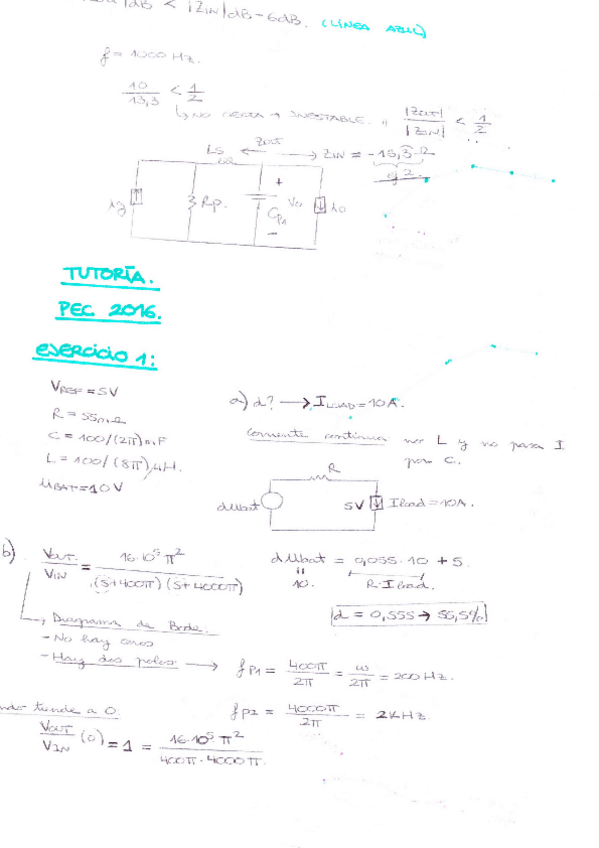 |dB < |ZIN|dB - 6dB. (LÍNEA AZUL)
f = 1000 Hz.
10/13,3 < 1/2
↳ NO CIERTA → INESTABLE. |Zout|/|ZIN| < 1/2
Ls Zout → ZIN = -15,3 Ω
Rp. + Cp1 - 
TUTORÍA.
PEC 2016.
EJERCICIO 1:
VREF = 5V
R = 55mΩ
C = 100/(2π) mF
L = 100/(8π) μH.
UBAT = 10V
a) d? → ILOAD = 10A.
Corriente continua no L y no pasa I
por C.
R
dUbat 5V Iload = 10A.
b) Vout/VIN = 16·10⁵π²/(s+400π)(s+4000π)
dUbat = 0,055·10 + 5.
10. R·Iload.
d = 0,555 → 55,5%
→ Diagrama de Bode.
- No hay ceros
- Hay dos polos → fp1 = 400π/2π = ω/2π = 200 Hz.
fp2 = 4000π/2π = 2kHz.
tiende a 0.
Vout/VIN (0) = 1 = 16·10⁵π²/400π·4000π.